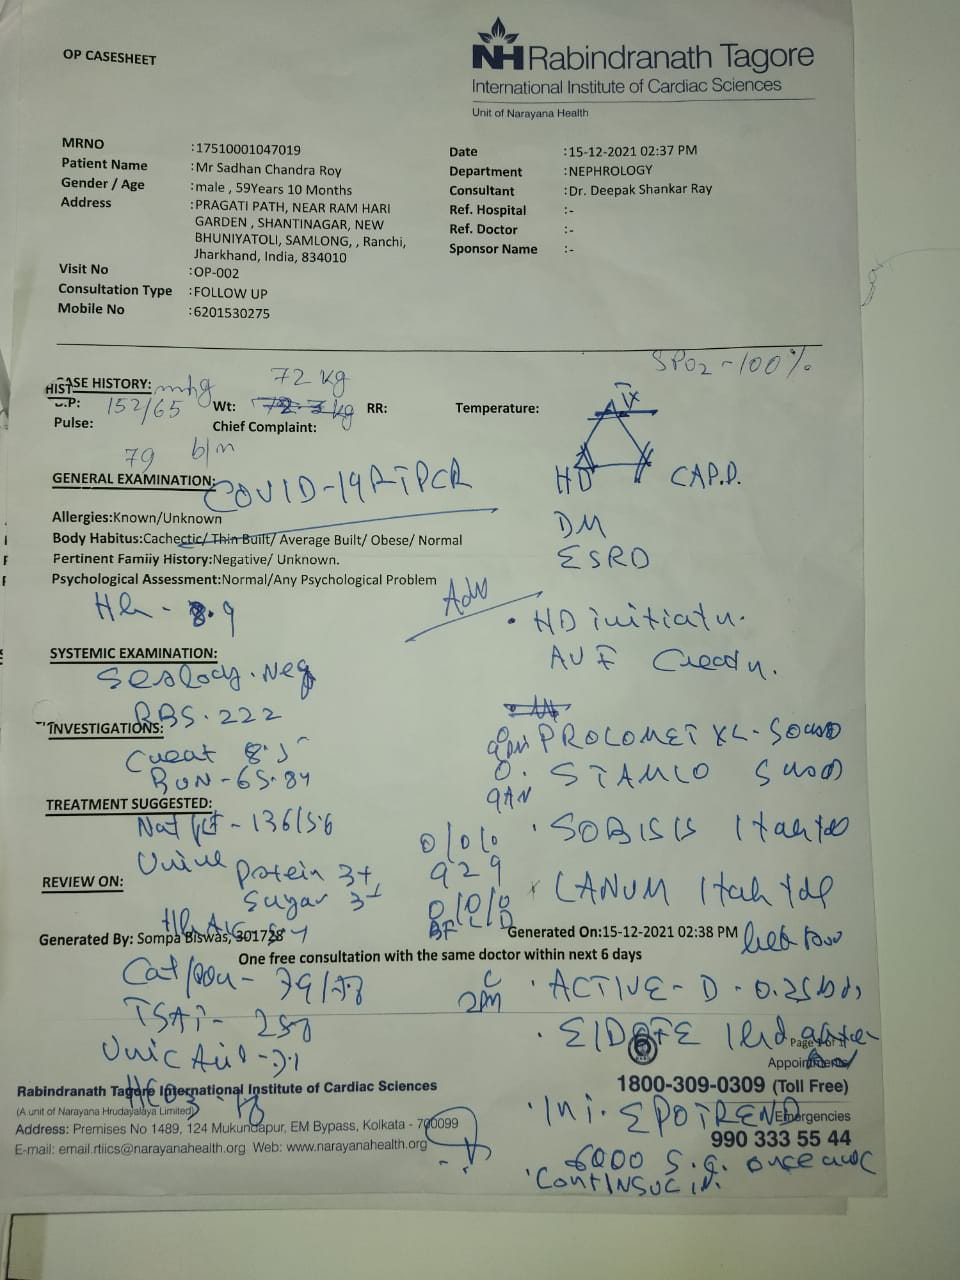 OP CASESHEET
NH Rabindranath Tagore
International Institute of Cardiac Sciences
Unit of Narayana Health
MRNO :17510001047019
Patient Name :Mr Sadhan Chandra Roy
Gender / Age :male , 59Years 10 Months
Address :PRAGATI PATH, NEAR RAM HARI
GARDEN , SHANTINAGAR, NEW
BHUNIYATOLI, SAMLONG, , Ranchi,
Jharkhand, India, 834010
Visit No :OP-002
Consultation Type :FOLLOW UP
Mobile No :6201530275
Date :15-12-2021 02:37 PM
Department :NEPHROLOGY
Consultant :Dr. Deepak Shankar Ray
Ref. Hospital :-
Ref. Doctor :-
Sponsor Name :-
SPO2 - 100%
CASE HISTORY:
152/65 Wt: 72 kg RR: Temperature:
Pulse: 79 b/m Chief Complaint:
Tx
HD CAPD
GENERAL EXAMINATION:
COVID-19 RTPCR
DM
ESRD
Allergies:Known/Unknown
Body Habitus:Cachectic/ Thin Built/ Average Built/ Obese/ Normal
Pertinent Family History:Negative/ Unknown.
Psychological Assessment:Normal/Any Psychological Problem
Adv
Hb - 8.9
HD initiatn.
AVF Creatn.
SYSTEMIC EXAMINATION:
Neg
RBS. 222
INVESTIGATIONS:
Creat 8.5
BUN - 65.84
PROLOMET XL- 50
STAMLO 5
TREATMENT SUGGESTED:
136/5.6
Urine Protein 3+
Sugar 3+
SOBISIS 1 tab tds
REVIEW ON:
LANUM 1 tab tds
Generated By: Sompa Biswas, 301728 Generated On:15-12-2021 02:38 PM
One free consultation with the same doctor within next 6 days
ACTIVE - D - 0.25
TSAT -
Uric Acid -
HCO3 - 18
Page 1 of 1
Appointments
1800-309-0309 (Toll Free)
Emergencies
990 333 55 44
Rabindranath Tagore International Institute of Cardiac Sciences
(A unit of Narayana Hrudayalaya Limited)
Address: Premises No 1489, 124 Mukundapur, EM Bypass, Kolkata - 700099
E-mail: email.rtiics@narayanahealth.org Web: www.narayanahealth.org
Inj. EPOTREND
6000 S.C. once